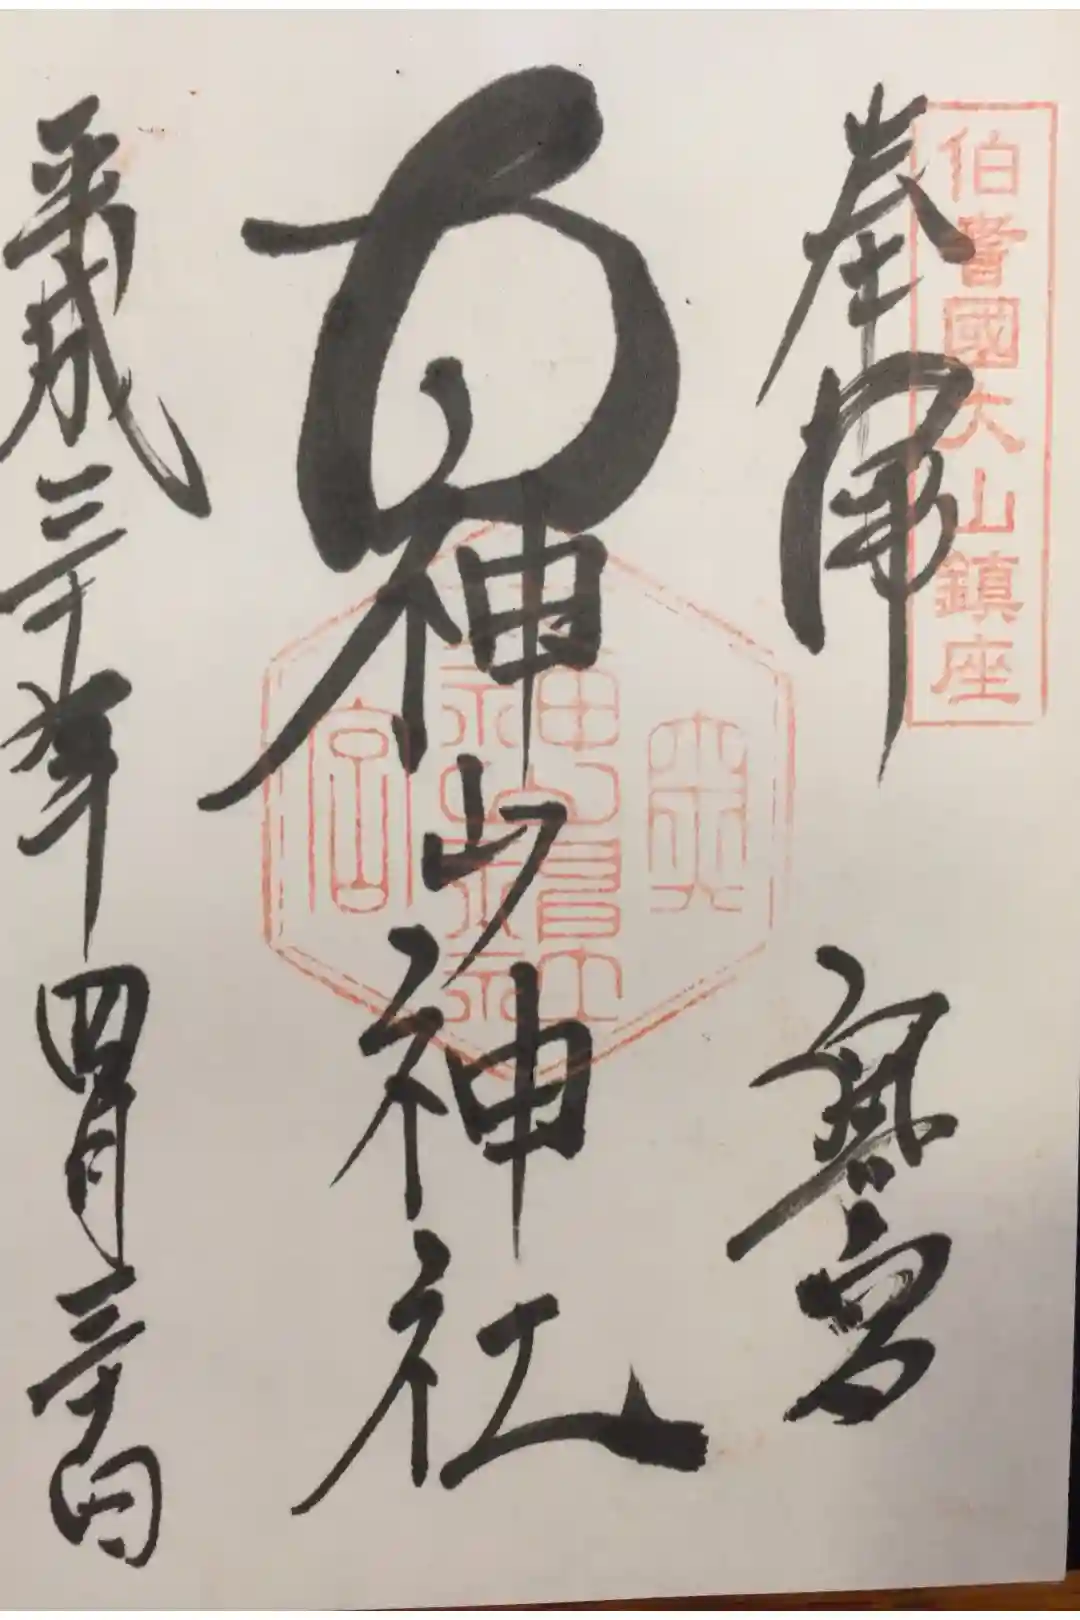 伯耆國大山鎮座
奉拝
奥宮
大神山神社
奥
宮
平成三十年四月三十日